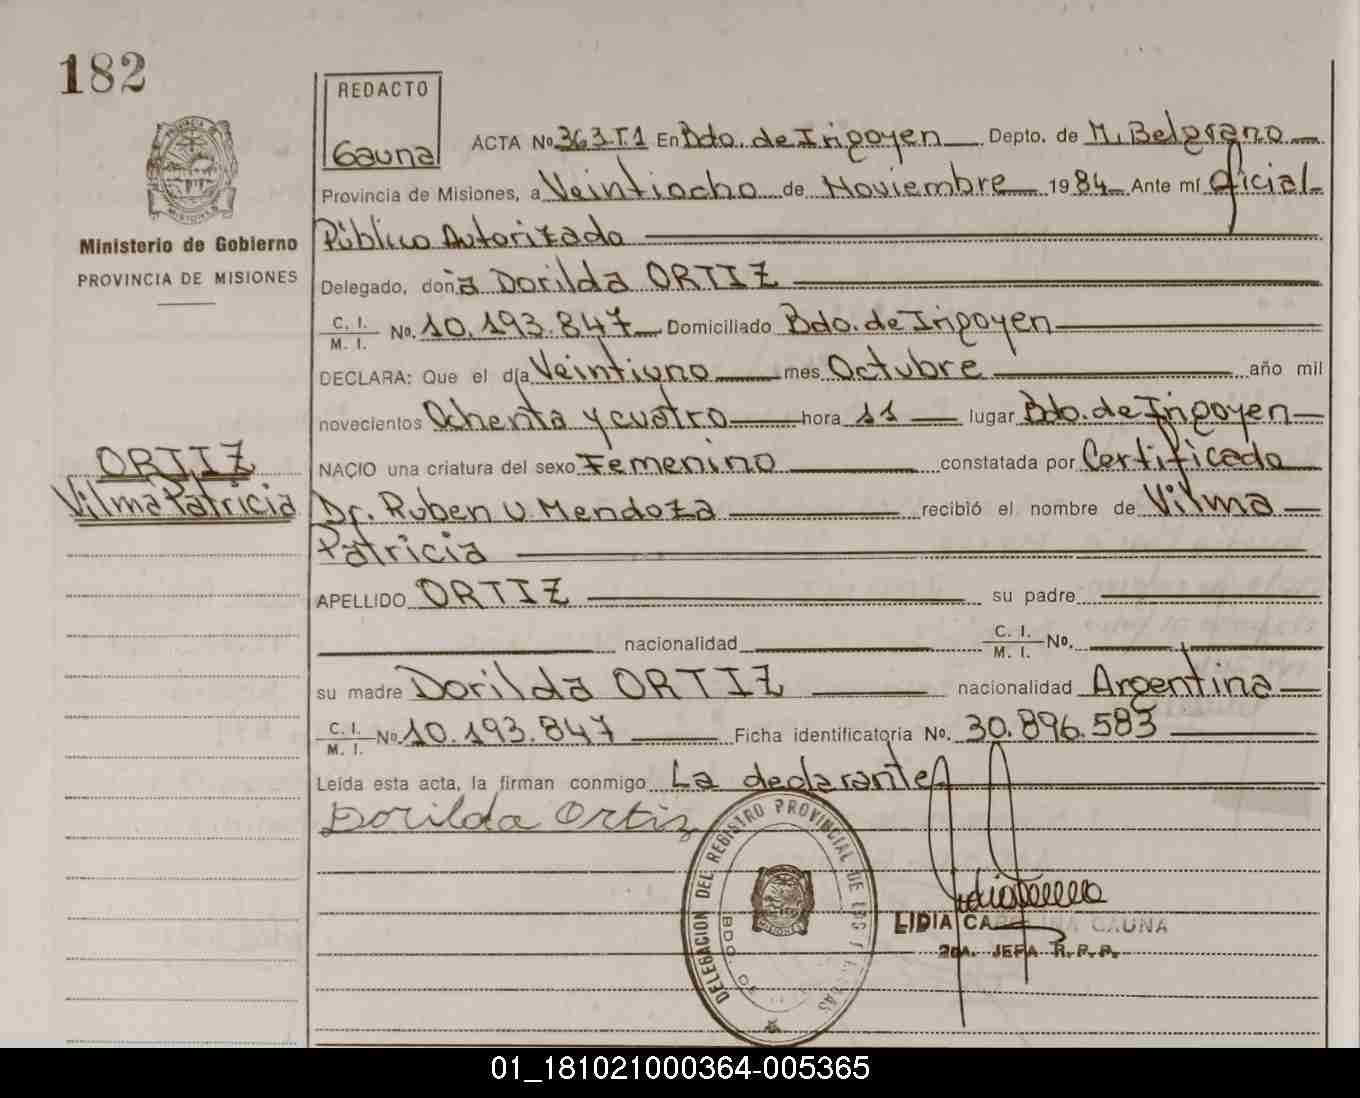 182
REDACTO
Gauna
ACTA No 363.T.1 En Bdo. de Irigoyen Depto. de M. Belgrano
Provincia de Misiones, a Veintiocho de Noviembre 1984 Ante mí Oficial
Público Autorizado
Ministerio de Gobierno
PROVINCIA DE MISIONES
Delegado, doña Dorilda ORTIZ
C. I.
M. I. No. 10.193.847 Domiciliado Bdo. de Irigoyen
DECLARA: Que el día Veintiuno mes Octubre año mil
novecientos Ochenta y cuatro hora 11 lugar Bdo. de Irigoyen
ORTIZ
Vilma Patricia
NACIO una criatura del sexo Femenino constatada por Certificado
Dr. Ruben U Mendoza recibió el nombre de Vilma
Patricia
APELLIDO ORTIZ su padre
nacionalidad C. I.
M. I. No.
su madre Dorilda ORTIZ nacionalidad Argentina
C. I.
M. I. No. 10.193.847 Ficha identificatoria No. 30.896.583
Leída esta acta, la firman conmigo La declarante
Dorilda Ortiz
DELEGACION DEL REGISTRO PROVINCIAL DE LAS PERSONAS
BDO. DE
MISIONES
LIDIA CAROLINA GAUNA
2DA. JEFA R.P.P.
01_181021000364-005365